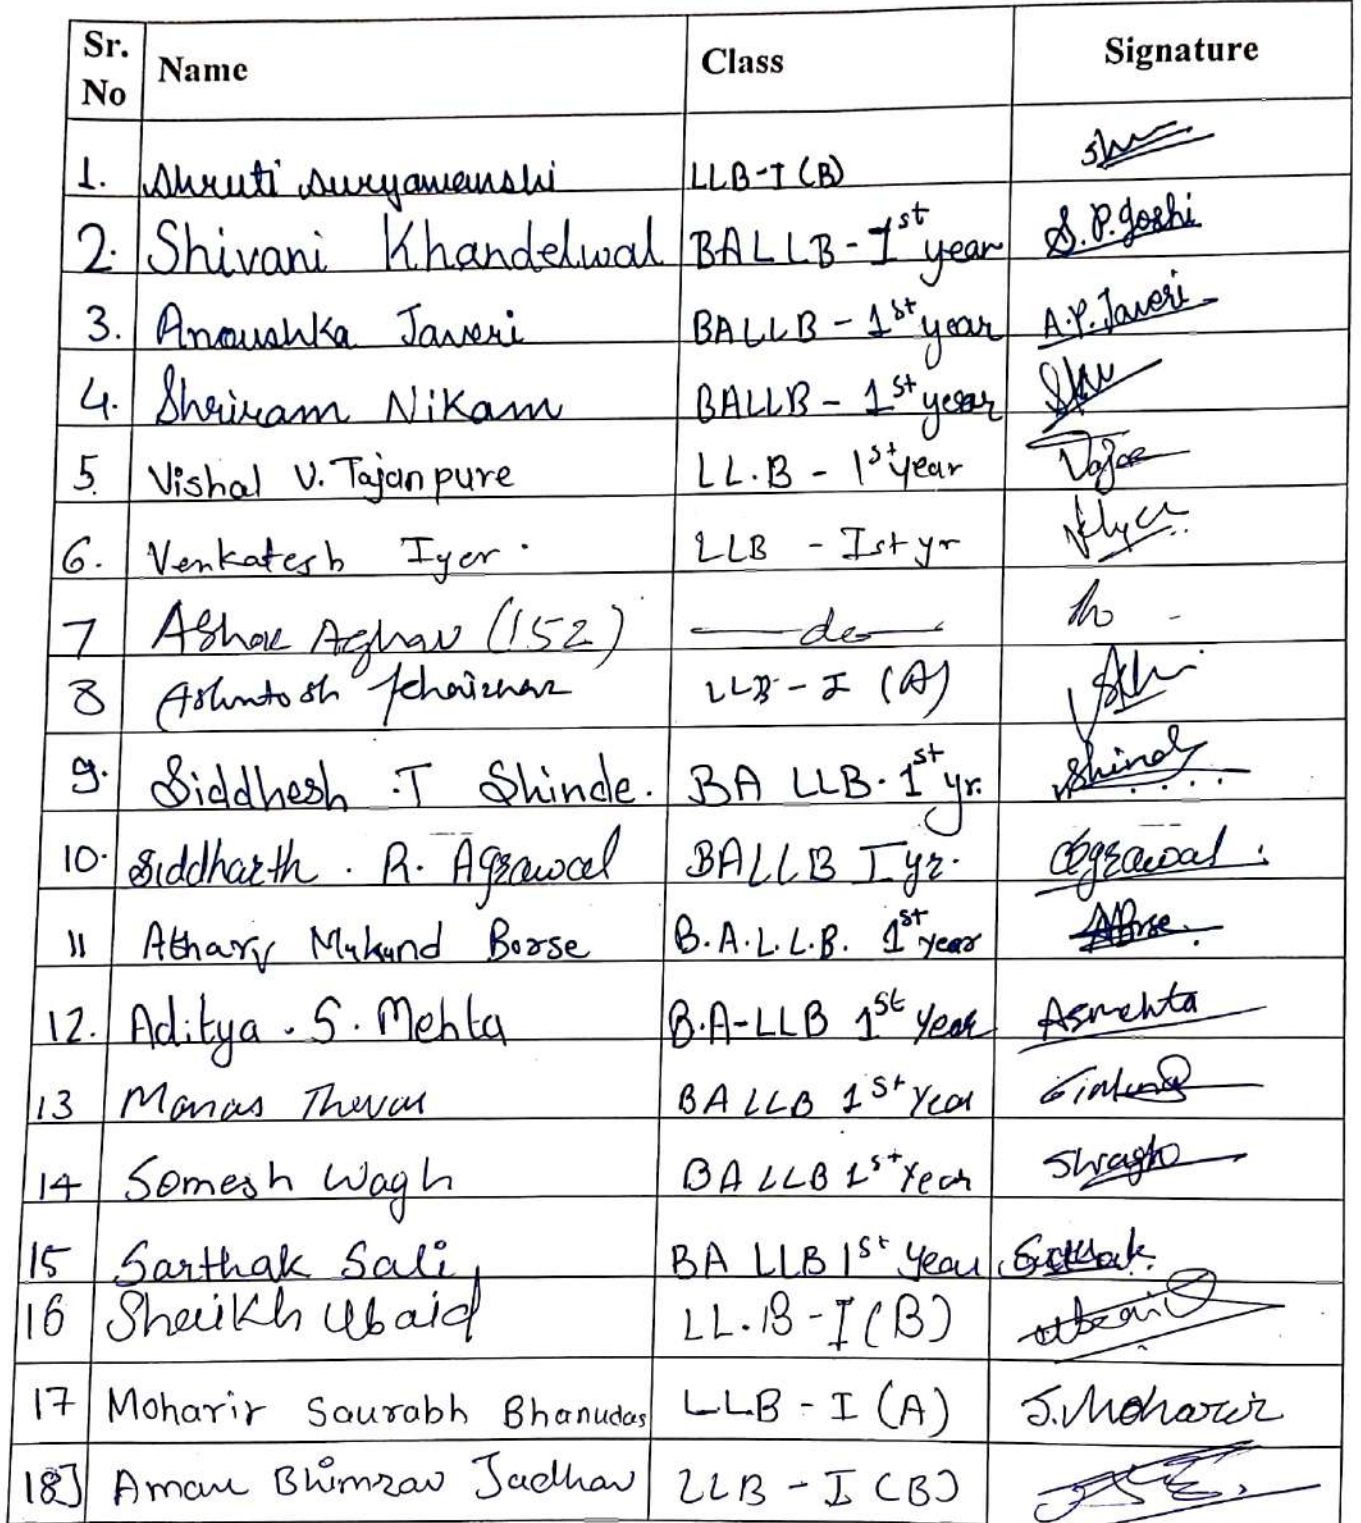 Sr. No Name Class Signature
1. Shruti Suryawanshi LLB-I (B)
2. Shivani Khandelwal BALLB - 1st year S.P.Joshi
3. Anoushka Javeri BALLB - 1st year A.P.Javeri
4. Shriram Nikam BALLB - 1st year
5. Vishal V. Tajanpure LL.B - 1st year
6. Venkatesh Iyer. LLB - Ist yr
7 Ashok Aghav (152) — do —
8 Ashutosh LLB - I (A)
9. Siddhesh .T Shinde. BA LLB. 1st yr. Shinde
10. Siddharth . R. Agrawal BALLB I yr. Agrawal
11 Atharv Mukund Borse B.A.L.L.B. 1st year
12. Aditya . S. Mehta B.A-LLB 1st Year Asmehta
13 Manas Thevar BA LLB 1st Year
14 Somesh Wagh BA LLB 1st Year Swagh
15 Sarthak Sali BA LLB 1st Year Sarthak
16 Shaikh Ubaid LL.B - I (B)
17 Moharir Saurabh Bhanudas LLB - I (A) S.Moharir
18] Aman Bhimrav Jadhav LLB - I (B)